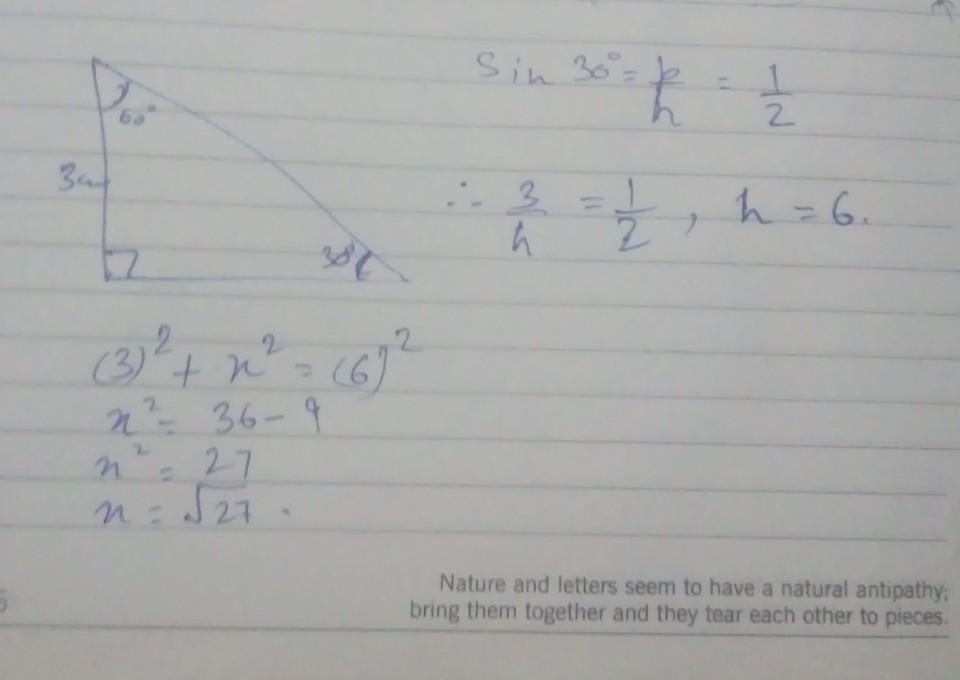 60°
3cm
30°
Sin 30° = p/h = 1/2
∴ 3/h = 1/2, h = 6.
(3)² + x² = (6)²
x² = 36 - 9
x² = 27
x = √27.
Nature and letters seem to have a natural antipathy;
bring them together and they tear each other to pieces.